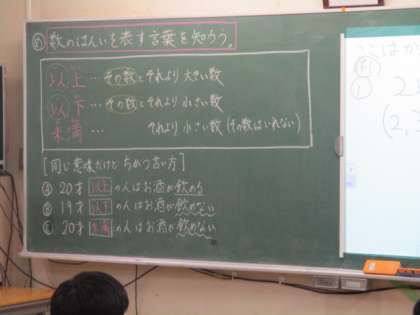 め 数のはんいを表す言葉を知ろう。
以上…その数とそれより大きい数
以下…その数とそれより小さい数
未満… それより小さい数(その数はいれない)
[同じ意味だけどちがう言い方]
Ⓐ 20才 以上 の人はお酒が飲める
Ⓑ 19才 以下 の人はお酒が飲めない
Ⓒ 20才 未満 の人はお酒が飲めない
ここはか